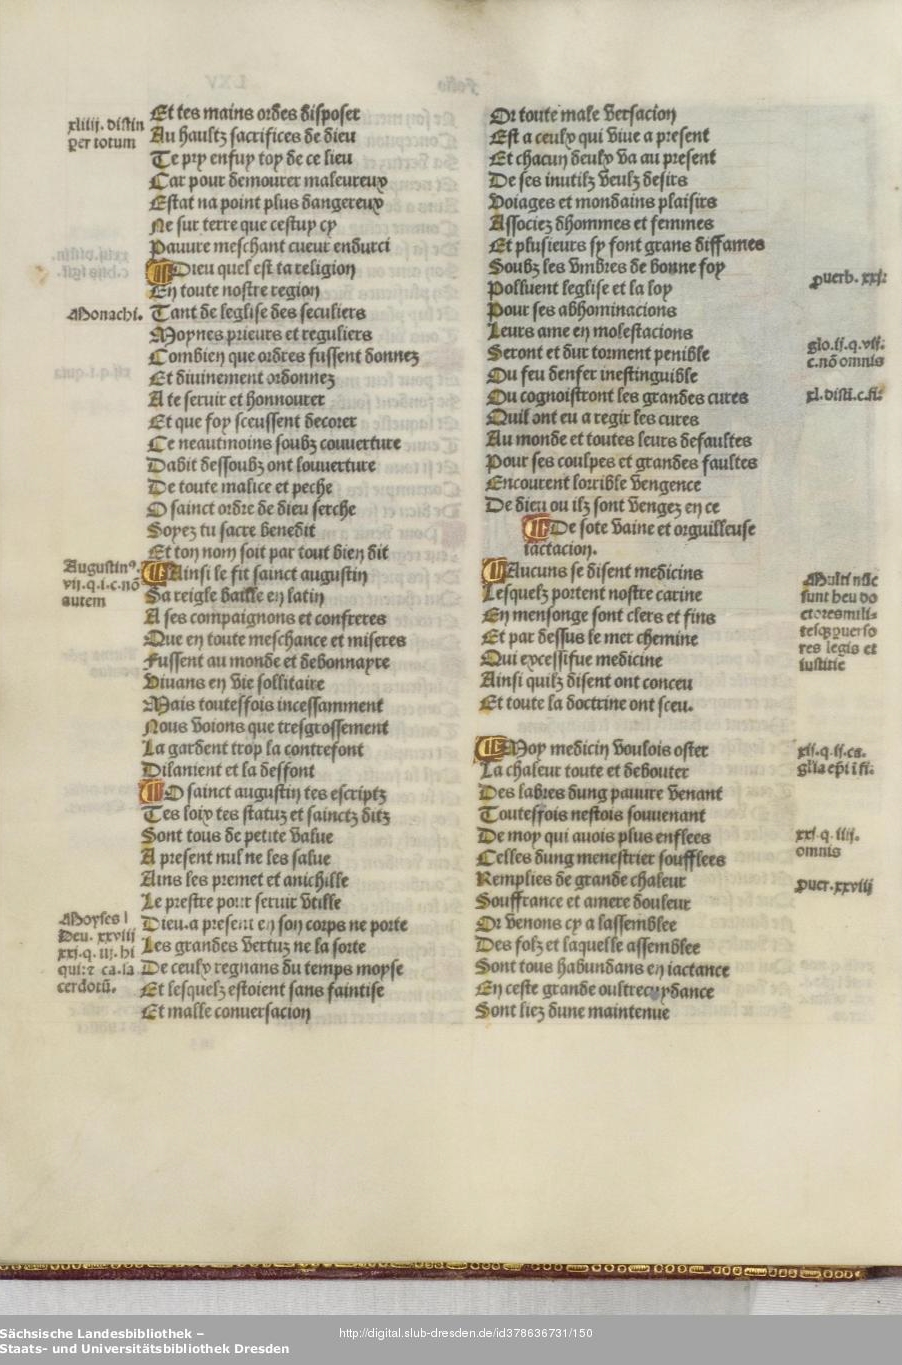 Et tes mains ordes disposer
Au haultz sacrifices de dieu
Te pry enfuy toy de ce lieu
Car pour demourer maleureux
Estat na point plus dangereux
Ne sur terre que cestuy cy
Pauure meschant cueur endurci
Dieu quel est ta religion
En toute nostre region
Tant de leglise des seculiers
Moynes prieurs et reguliers
Combien que ordres fussent donnez
Et diuinement ordonnez
A te seruir et honnourer
Et que foy sceussent decorer
Ce neautmoins soubz couuerture
Dabit dessoubz ont louuerture
De toute malice et peche
O sainct ordre de dieu serche
Soyez tu sacre benedit
Et ton nom soit par tout bien dit
Ainsi le fit sainct augustin
Sa reigle baille en latin
A ses compaignons et confreres
Que en toute meschance et miseres
Fussent au monde et debonnayre
Viuans en vie sollitaire
Mais touteffois incessamment
Nous voions que tresgrossement
La gardent trop la contrefont
Dilanient et la deffont
O sainct augustin tes escriptz
Tes loix tes statuz et sainctz ditz
Sont tous de petite value
A present nul ne les salue
Ains les premet et anichille
Le prestre pour seruir vtille
Dieu. a present en son corps ne porte
Les grandes vertuz ne la sorte
De ceulx regnans du temps moyse
Et lesquelz estoient sans faintise
Et malle conuersacion
xliiij. distin
per totum
Monachi.
Augustinꝰ.
vij. q. i. c. nō
autem
Moyses i
Deu. xxviij
xxj. q. iij. hi
qui: ⁊ ca. sa
cerdotū.
Or toute male versacion
Est a ceulx qui viue a present
Et chacun deulx va au present
De ses inutilz veulz desirs
Voiages et mondains plaisirs
Associez dhommes et femmes
Et plusieurs sy font grans diffames
Soubz les vmbres de bonne foy
Polluent leglise et la loy
Pour ses abhominacions
Leurs ame en molestacions
Seront et dur torment penible
Du feu denfer inestinguible
Ou cognoistront les grandes cures
Quil ont eu a regir les cures
Au monde et toutes leurs defaultes
Pour ses coulpes et grandes faultes
Encourent lorrible vengence
De dieu ou ilz sont vengez en ce
De sote vaine et orguilleuse
iactacion.
Aucuns se disent medicins
Lesquelz portent nostre carine
En mensonge sont clers et fins
Et par dessus le mer chemine
Qui excessifue medicine
Ainsi quilz disent ont conceu
Et toute la doctrine ont sceu.
Moy medicin voulois oster
La chaleur toute et debouter
Des labres dung pauure venant
Touteffois nestois souuenant
De moy qui auois plus enflees
Celles dung menestrier soufflees
Remplies de grande chaleur
Souffrance et amere douleur
Or venons cy a lassemblee
Des folz et laquelle assemblee
Sont tous habundans en iactance
En ceste grande oultrecuydance
Sont liez dune maintenue
puerb. xxj:
glo. ij. q. vij.
c. nō omnis
xl. disti. c. fi:
Multi nūc
sunt heu do
ctores mili-
tesqꝫ
res legis et
iusticie
xij. q. ij. ca.
xxj. q. iiij.
omnis
puer. xxviij
Sächsische Landesbibliothek –
Staats- und Universitätsbibliothek Dresden
http://digital.slub-dresden.de/id378636731/150